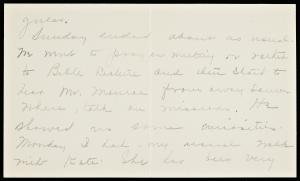 guess.
Sunday ended about as usual.
to prayer meeting or rather
to Bible Lecture and then
hear Mr. from away
where, talk on missions. He
showed us some curiosities.
Monday I had my usual walk
with Kate. She has been very